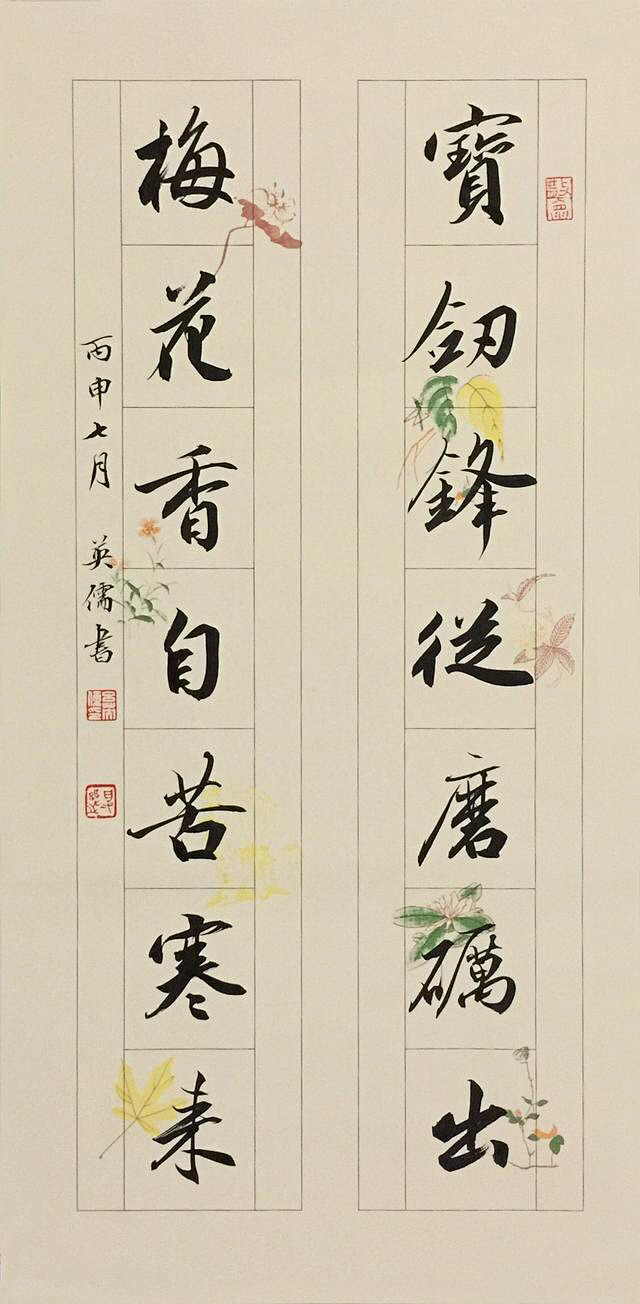 寶劒鋒從磨礪出
梅花香自苦寒来
丙申七月 英儒書